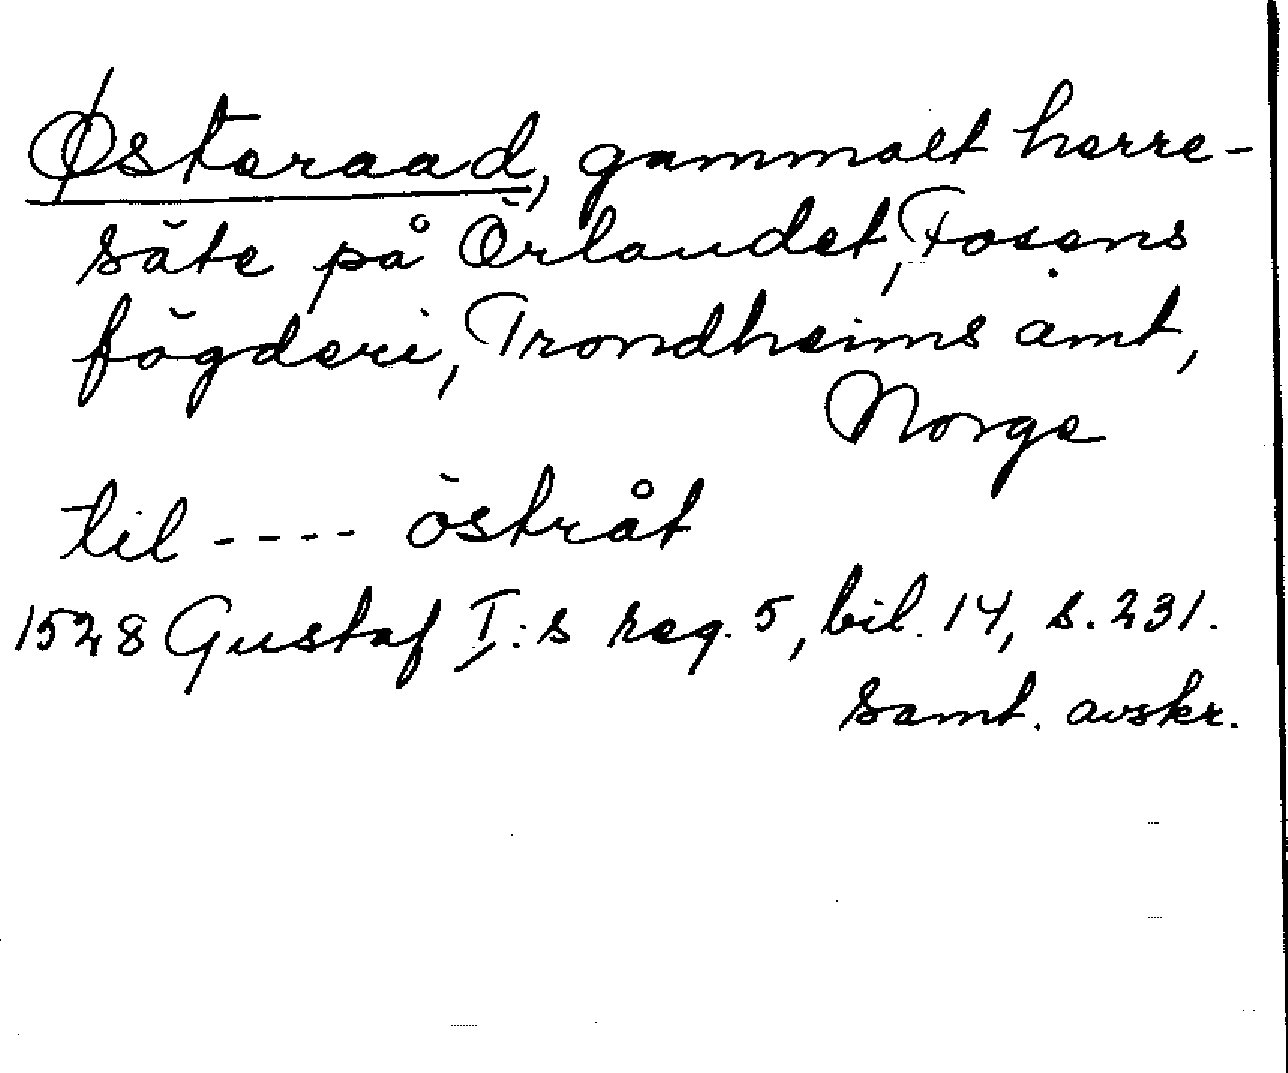 Østeraad, gammalt herre-
säte på Örlandet, Fosens
fögderi, Trondheims amt,
Norge
til ---- östråt
1528 Gustaf I:s reg. 5, bil. 14, s. 231.
samt. avskr.